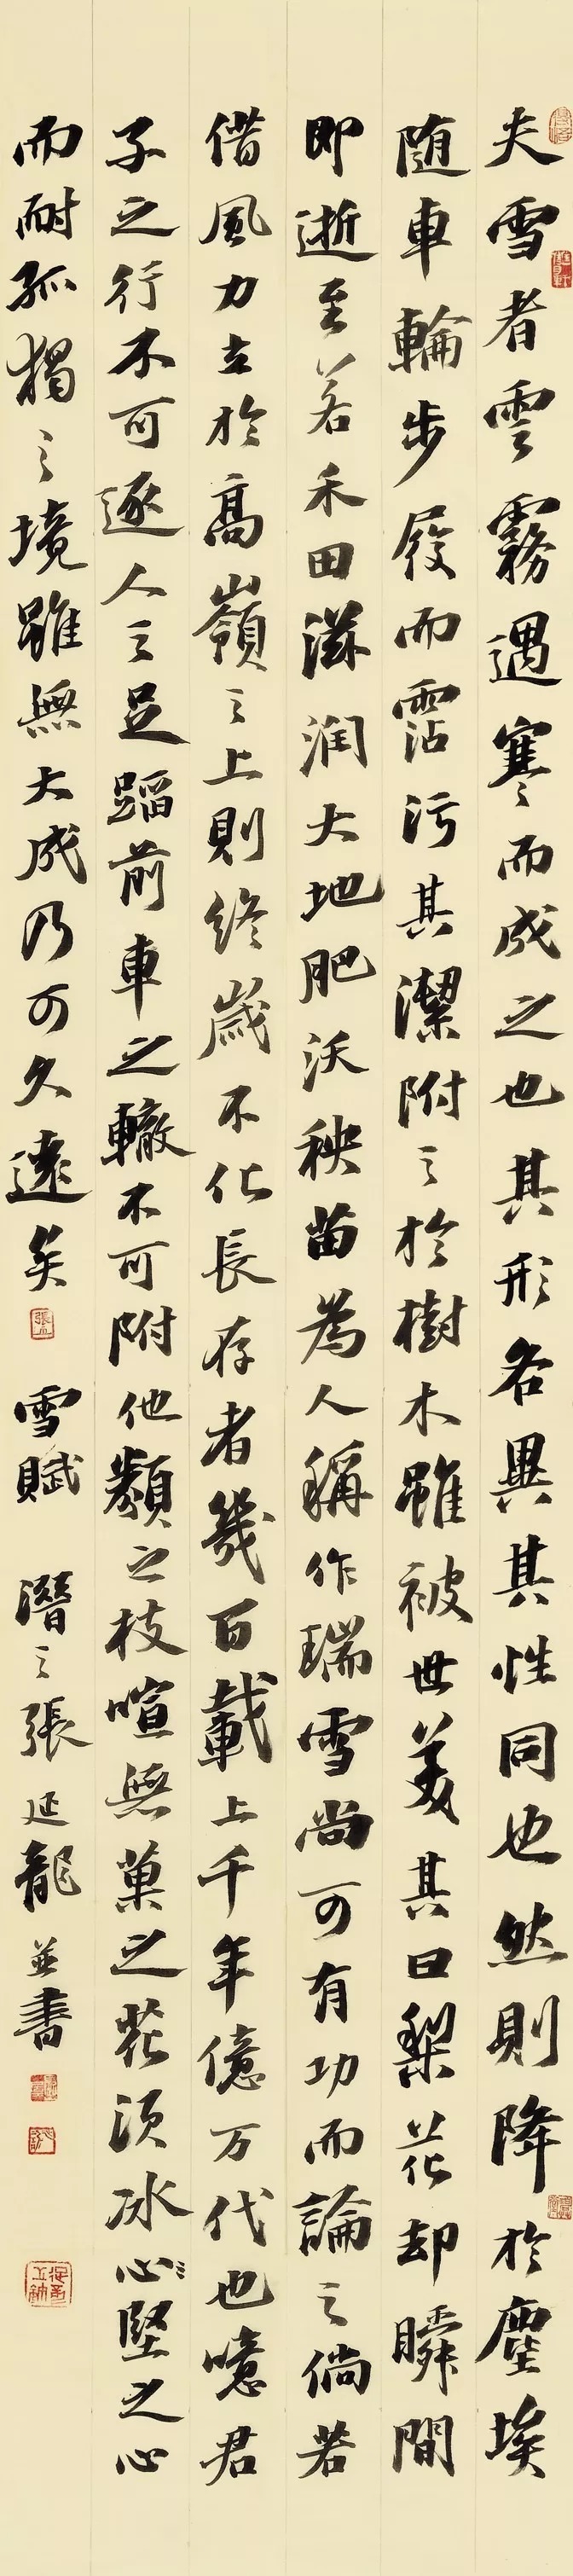 夫雪者雲霧遇寒而成之也其形各異其性同也然則降於塵埃
随車輪步履而霑污其潔附之於樹木雖被世美其曰梨花却瞬間
即逝至若禾田滋润大地肥沃秧苗為人稱作瑞雪尚可有功而論之倘若
借風力立於高嶺之上則終歲不化長存者幾百載上千年億万代也噫君
子之行不可逐人之足蹈前車之轍不可附他類之枝喧無菓之花須冰心堅之心
而耐孤獨之境雖無大成乃可久遠矣 雪賦 潛之張延龍並書